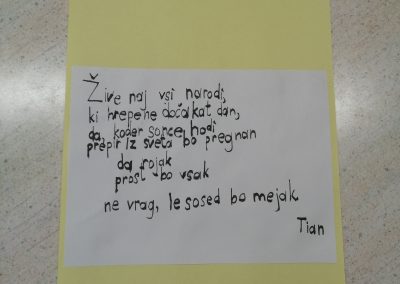 Žive naj vsi narodi,
ki hrepene dočakat dan,
da, koder sonce hodi
prepir iz sveta bo pregnan
da rojak
prost bo vsak
ne vrag, le sosed bo mejak
Tian